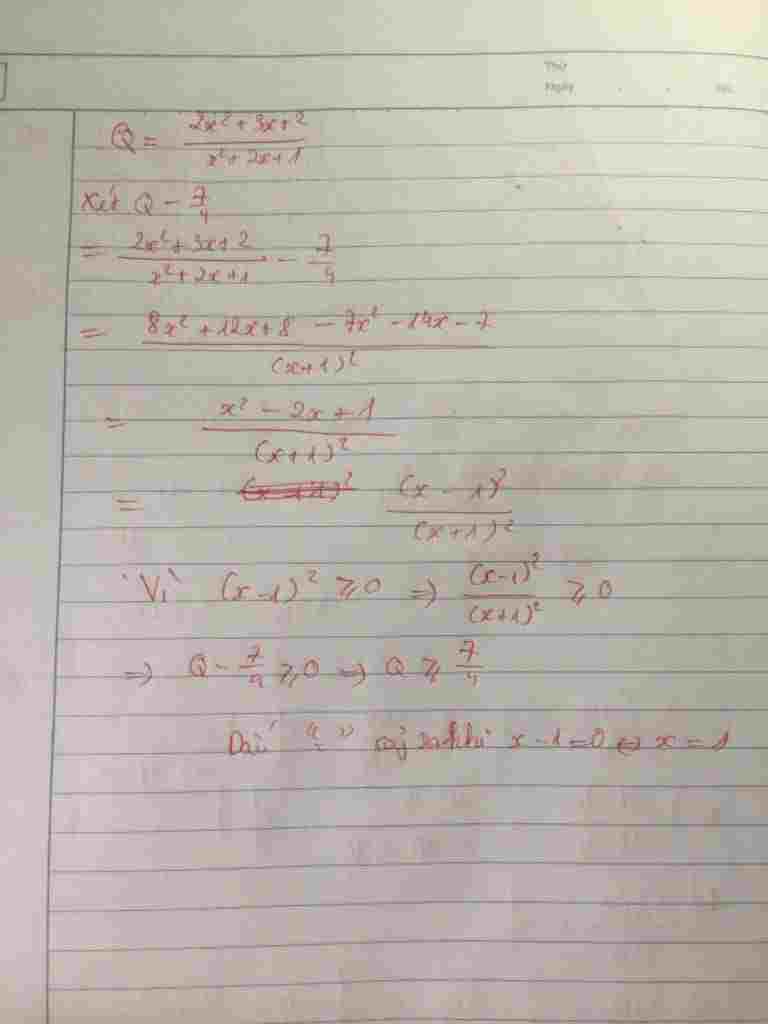 Thứ
Ngày
Q = \frac{2x² + 3x + 2}{x² + 2x + 1}
Xét Q - \frac{7}{4}
= \frac{2x² + 3x + 2}{x² + 2x + 1} - \frac{7}{4}
= \frac{8x² + 12x + 8 - 7x² - 14x - 7}{(x+1)²}
= \frac{x² - 2x + 1}{(x+1)²}
= \frac{(x - 1)²}{(x+1)²}
Vì (x-1)² ⩾ 0 ⇒ \frac{(x-1)²}{(x+1)²} ⩾ 0
⇒ Q - \frac{7}{4} ⩾ 0 ⇒ Q ⩾ \frac{7}{4}
Dấu "=" xảy ra khi x - 1 = 0 ⇔ x = 1